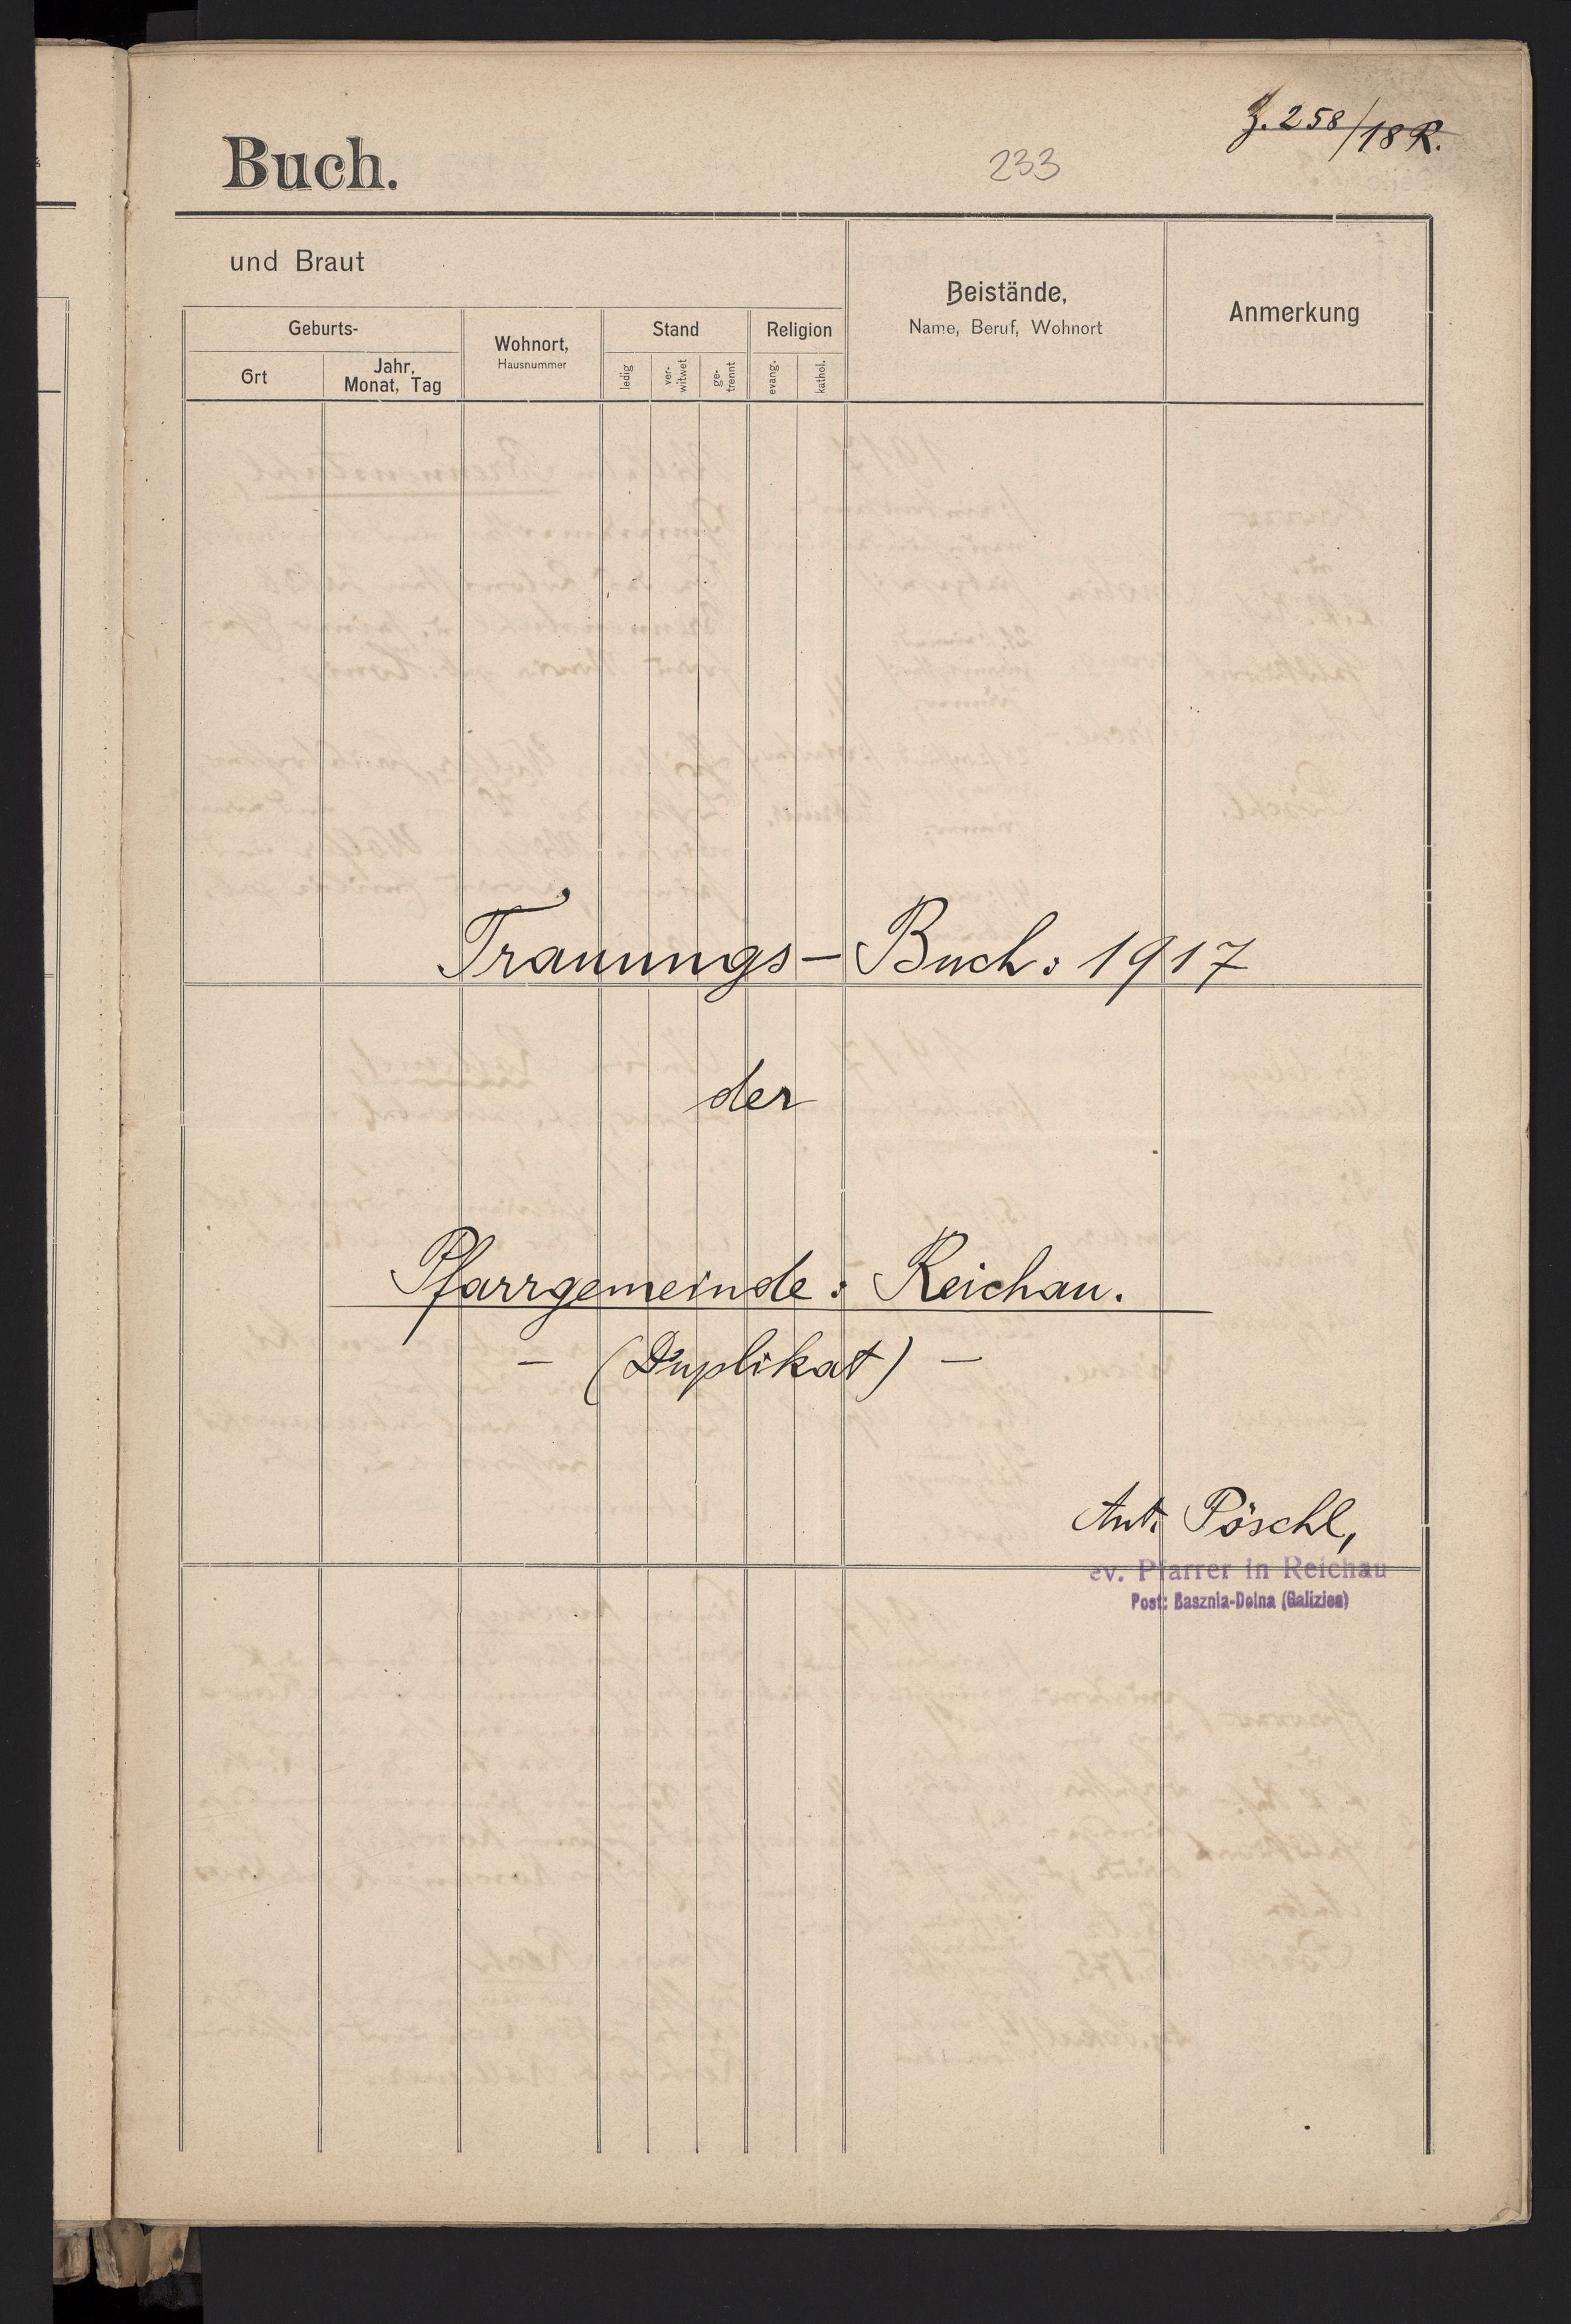 Z. 258/18 R.
Buch.
233
und Braut
Geburts-
Ort
Jahr, Monat, Tag
Wohnort,
Hausnummer
Stand
ledig
ver-witwet
ge-trennt
Religion
evang.
kathol.
Beistände,
Name, Beruf, Wohnort
Anmerkung
Trauungs-Buch: 1917
der
Pfarrgemeinde: Reichau.
— (Duplikat) —
Ant. Pöschl,
ev. Pfarrer in Reichau
Post: Basznia-Dolna (Galizien)